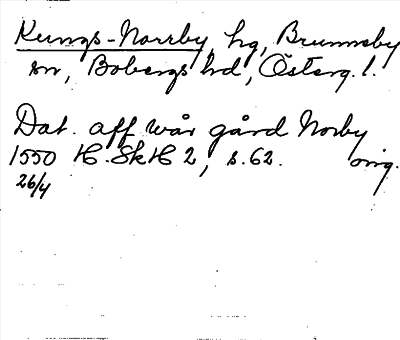 Kungs-Norrby, hg, Brunneby
sn, Bobergs hd, Österg. l.
Dat. aff wår gård Norby
1550 H. SkH 2, s. 62. orig.
26/4